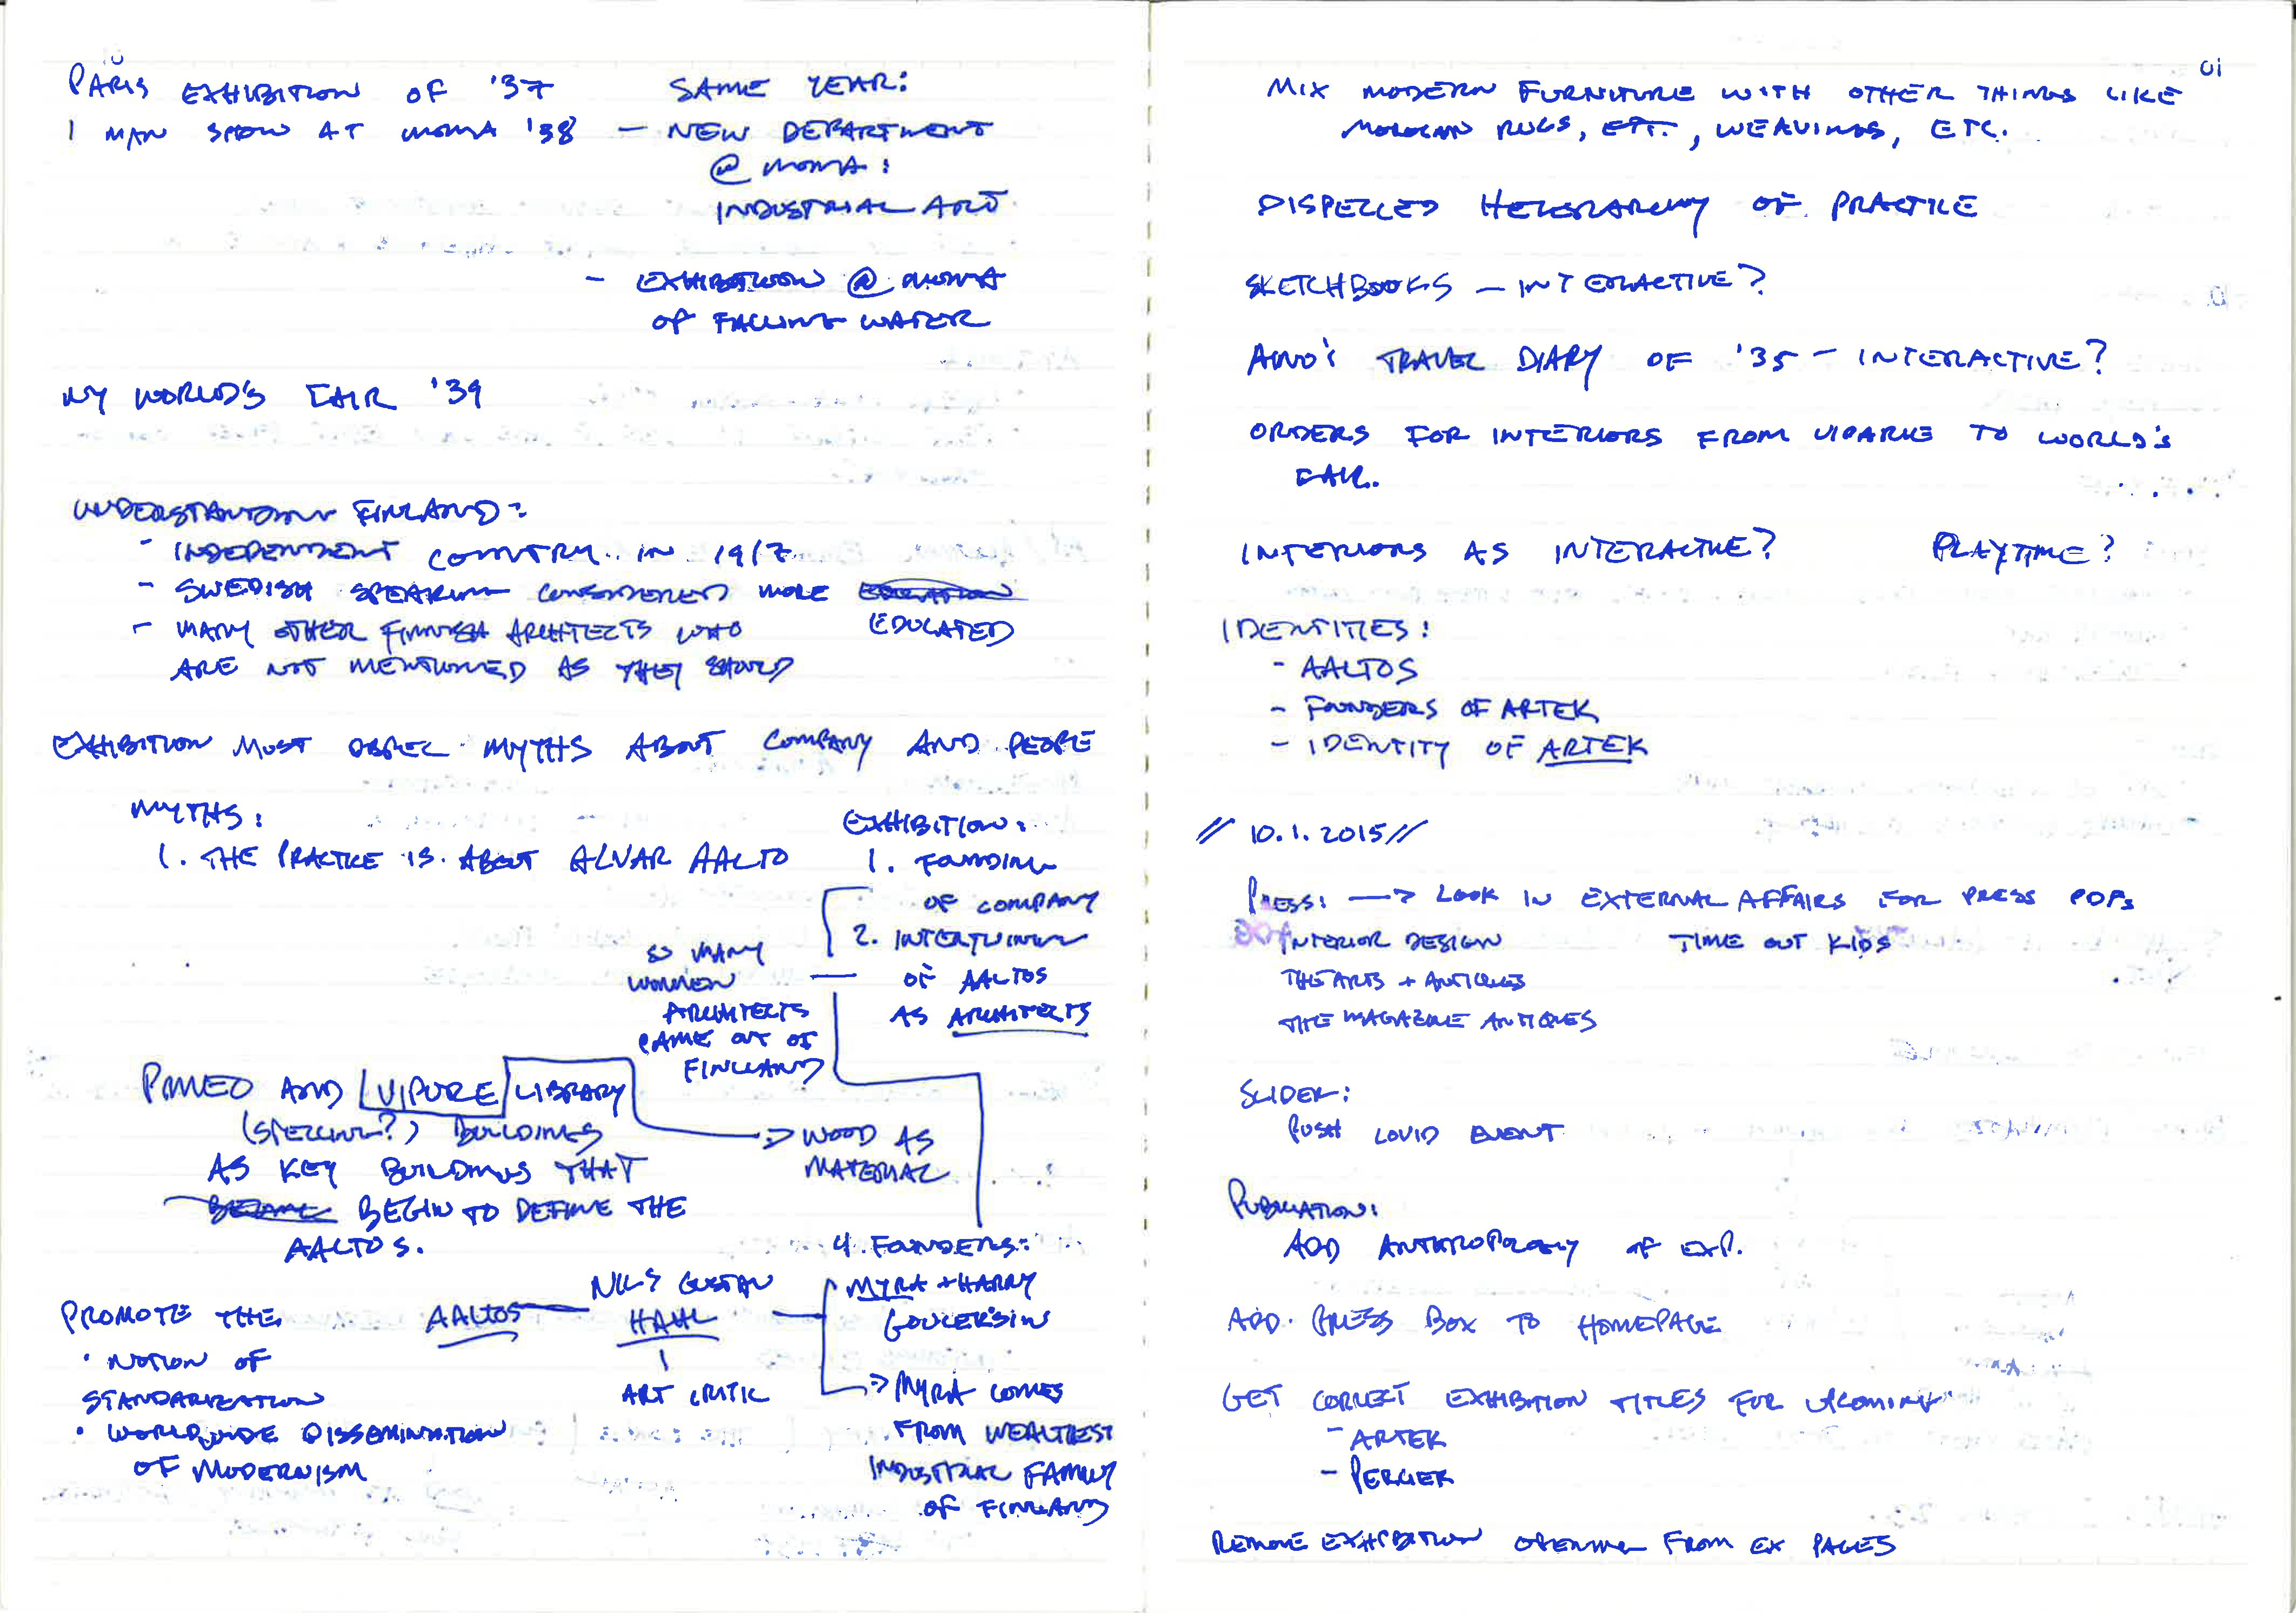 PARIS EXHIBITION OF '37
1 MAN SHOW AT MOMA '38
SAME YEAR:
- NEW DEPARTMENT
@ MOMA:
INDUSTRIAL ART
- EXHIBITION @ MOMA
OF FALLING WATER
NY WORLD'S FAIR '39
UNDERSTANDING FINLAND:
- INDEPENDENT COUNTRY IN 1917
- SWEDISH SPEAKING CONSIDERED MORE
EDUCATED
- MANY OTHER FINNISH ARCHITECTS WHO
ARE NOT MENTIONED AS THEY SHOULD
EXHIBITION MUST DISPEL MYTHS ABOUT COMPANY AND PEOPLE
MYTHS:
1. THE PRACTICE IS ABOUT ALVAR AALTO
EXHIBITION:
1. FOUNDING
OF COMPANY
2. INTERTWINING
OF AALTOS
AS ARCHITECTS
SO MANY
WOMEN
ARCHITECTS
CAME OUT OF
FINLAND
PAMEO AND VIPURE LIBRARY
(SPELLING?) BUILDINGS
AS KEY BUILDINGS THAT
BECAME BEGIN TO DEFINE THE
AALTOS.
=> WOOD AS
MATERIAL
4 FOUNDERS:
PROMOTE THE
• NOTION OF
STANDARIZATION
• WORLDWIDE DISSEMINATION
OF MODERNISM
AALTOS
NILS GUSTAV
HAHL
ART CRITIC
MYRA + HARRY
GULLERSIN
=> MYRA COMES
FROM WEALTIEST
INDUSTRIAL FAMILY
OF FINLAND
MIX MODERN FURNITURE WITH OTHER THINGS LIKE
MOROCAN RUGS, EPT., WEAVINGS, ETC.
DISPELLED HEIERARCHY OF PRACTICE
SKETCHBOOKS - INTERACTIVE?
AINO'S TRAVEL DIARY OF '35 - INTERACTIVE?
ORDERS FOR INTERIORS FROM VIPARKE TO WORLD'S
FAIR.
INTERIORS AS INTERACTIVE? PLAYTIME?
IDENTITIES:
- AALTOS
- FOUNDERS OF ARTEK
- IDENTITY OF ARTEK
// 10.1.2015 //
PRESS: —> LOOK IN EXTERNAL AFFAIRS FOR PRESS PDFS
INTERIOR DESIGN TIME OUT KIDS
THE ARTS + ANTIQUES
THE MAGAZINE ANTIQUES
SLIDER:
PUSH EVENT
PUBLICATION:
ADD ANTHROPOLOGY OF EXP.
ADD PRESS BOX TO HOMEPAGE
GET CORRECT EXHIBITION TITLES FOR UPCOMING
- ARTEK
- PERCIER
REMOVE EXHIBITION OPENING FROM EX PAGES